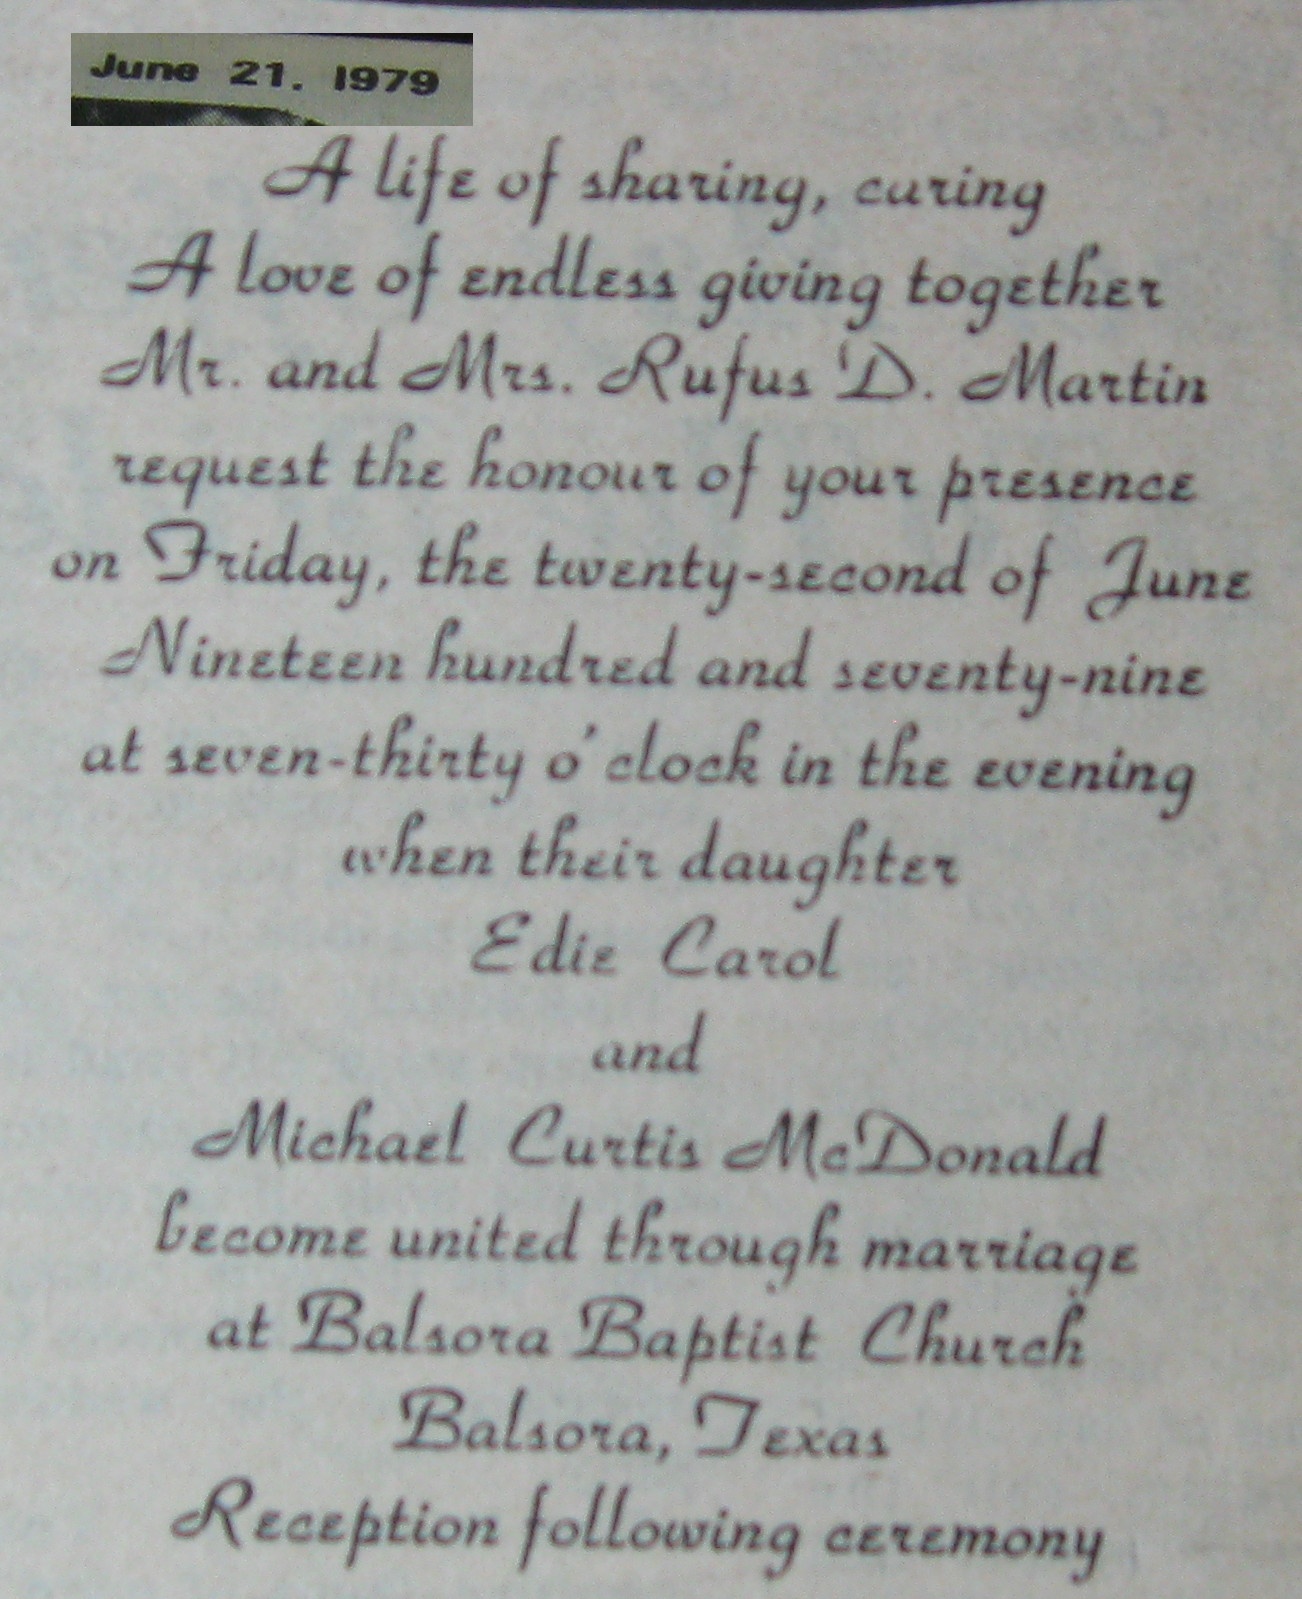 June 21, 1979
A life of sharing, caring
A love of endless giving together
Mr. and Mrs. Rufus D. Martin
request the honour of your presence
on Friday, the twenty-second of June
Nineteen hundred and seventy-nine
at seven-thirty o'clock in the evening
when their daughter
Edie Carol
and
Michael Curtis McDonald
become united through marriage
at Balsora Baptist Church
Balsora, Texas
Reception following ceremony